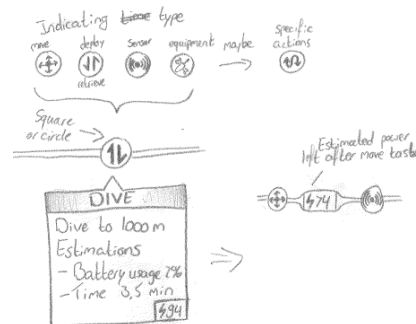 Indicating time type
move
deploy
retrieve
Sensor
equipment
Maybe
Specific
actions
Square
or circle
DIVE
Dive to 1000m
Estimations
- Battery usage 2%
- Time 3,5 min
94
Estimated power
left after move task
74